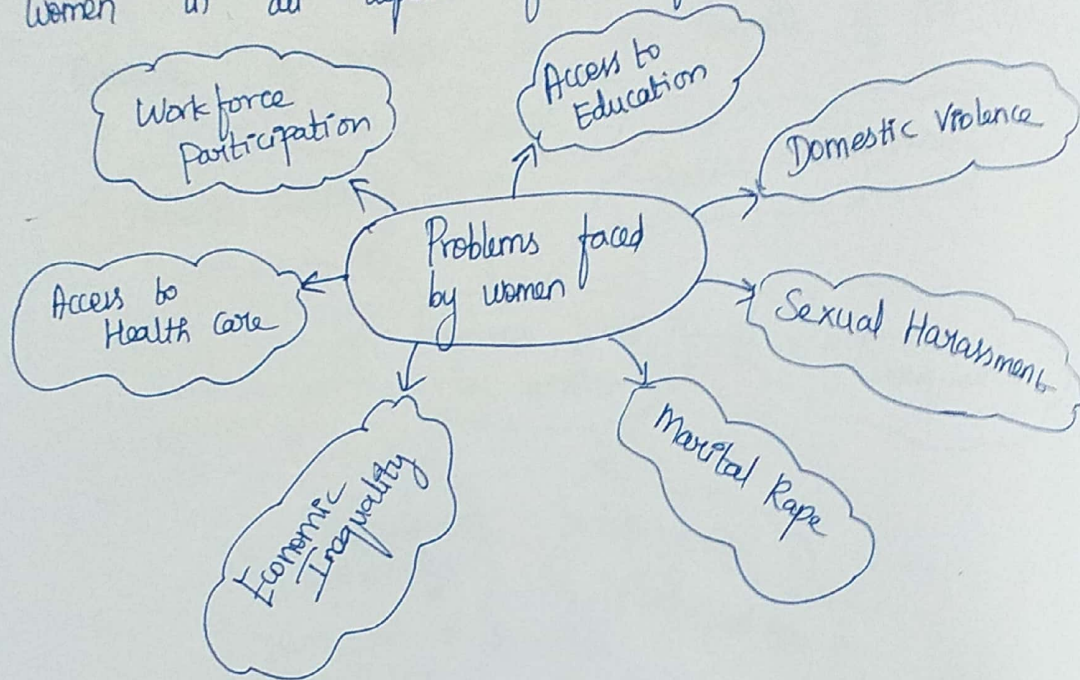 Women in all
Workforce
Participation
Access to
Education
Domestic Violence
Problems faced
by women
Access to
Health Care
Sexual Harassment
Economic
Inequality
Marital Rape